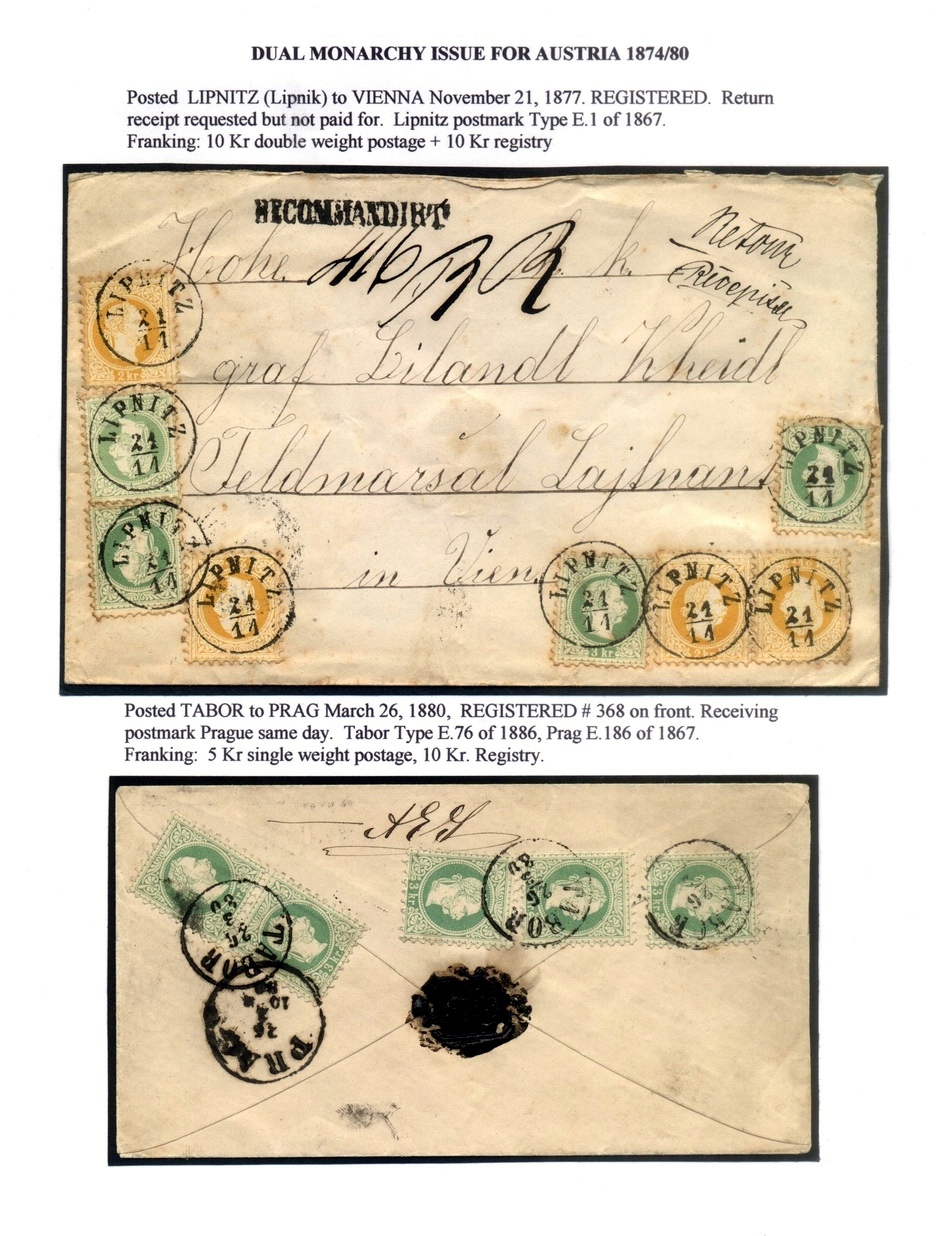 DUAL MONARCHY ISSUE FOR AUSTRIA 1874/80
Posted LIPNITZ (Lipnik) to VIENNA November 21, 1877. REGISTERED. Return
receipt requested but not paid for. Lipnitz postmark Type E.1 of 1867.
Franking: 10 Kr double weight postage + 10 Kr registry
RECOMMANDIRT
Hohe k.
Retour
Recepisse
graf Lilandl Kheidl
Feldmarsal Lajtnant
in Vien
LIPNITZ
21
11
2 kr.
LIPNITZ
21
11
LIPNITZ
21
11
LIPNITZ
21
11
LIPNITZ
21
11
LIPNITZ
21
11
3 kr.
LIPNITZ
21
11
LIPNITZ
21
11
Posted TABOR to PRAG March 26, 1880, REGISTERED # 368 on front. Receiving
postmark Prague same day. Tabor Type E.76 of 1886, Prag E.186 of 1867.
Franking: 5 Kr single weight postage, 10 Kr. Registry.
TABOR
26
3
80
3 kr.
3 kr.
TABOR
26
80
3 kr.
TABOR
26
PRAG
26
3